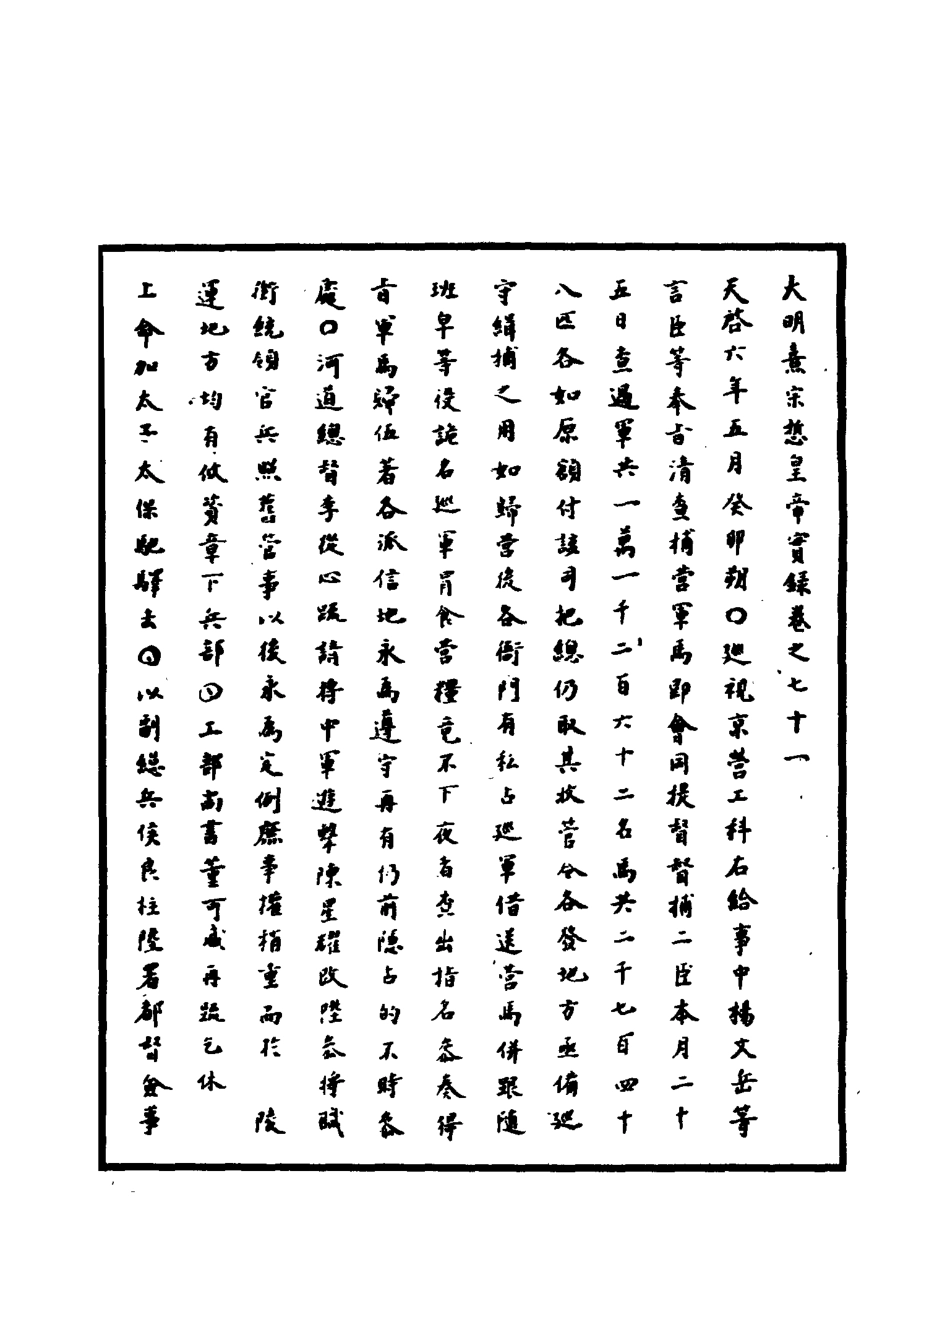 大明熹宗悊皇帝實錄卷之七十一
天啓六年五月癸卯朔○巡視京營工科右給事中楊文岳等
言臣等奉旨清查捕營軍馬即會同提督督捕二臣本月二十
五日查過軍共一萬一千二百六十二名馬共二千七百四十
八匹各如原額付該司把總仍取其收管令各發地方亟備巡
守緝捕之用如歸營後各衙門有私占巡軍借送營馬併跟隨
班皁等役詭名巡軍冐食營糧竟不下夜者查出指名叅奏得
旨軍馬歸伍著各派信地永為遵守再有仍前隱占的不時叅
處○河道總督李從心疏請將中軍遊擊陳星耀改陞叅將職
銜統領官兵照舊管事以後永為定例庶事權稍重而於 陵
運地方均有攸賛章下兵部○工部尚書董可威再疏乞休
上命加太子太保馳驛去○以副總兵侯良柱陞署都督僉事